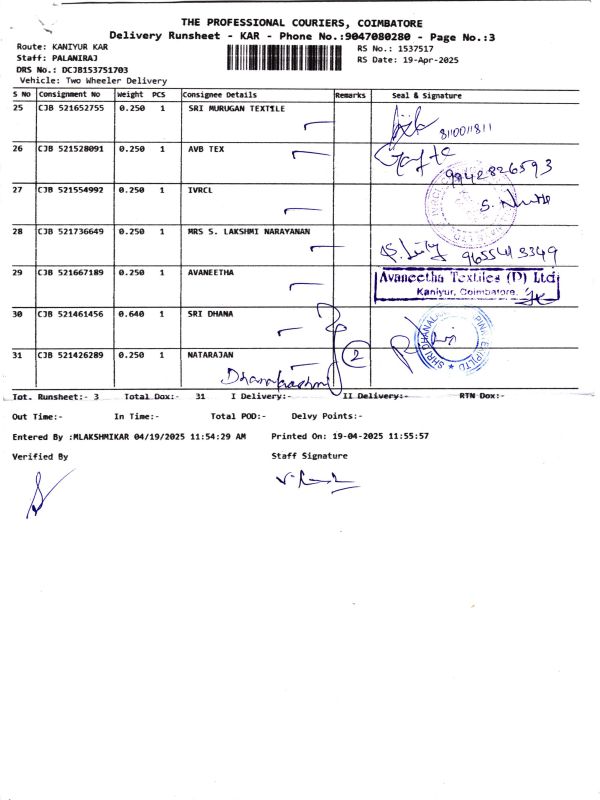 THE PROFESSIONAL COURIERS, COIMBATORE
Delivery Runsheet - KAR - Phone No.:9047080280 - Page No.:3
Route: KANIYUR KAR
RS No.: 1537517
Staff: PALANIRAJ
RS Date: 19-Apr-2025
DRS No.: DCJB153751703
Vehicle: Two Wheeler Delivery
S No Consignment No Weight PCS Consignee Details Remarks Seal & Signature
25 CJB 521652755 0.250 1 SRI MURUGAN TEXTILE
8110011811
26 CJB 521528091 0.250 1 AVB TEX
9942826593
27 CJB 521554992 0.250 1 IVRCL
28 CJB 521736649 0.250 1 MRS S. LAKSHMI NARAYANAN
29 CJB 521667189 0.250 1 AVANEETHA
Avaneetha Textiles (P) Ltd
Kaniyur, Coimbatore.
30 CJB 521461456 0.640 1 SRI DHANA
31 CJB 521426289 0.250 1 NATARAJAN
2
Tot. Runsheet:- 3 Total Dox:- 31 I Delivery:- II Delivery:- RTN Dox:-
Out Time:- In Time:- Total POD:- Delvy Points:-
Entered By :MLAKSHMIKAR 04/19/2025 11:54:29 AM Printed On: 19-04-2025 11:55:57
Verified By Staff Signature